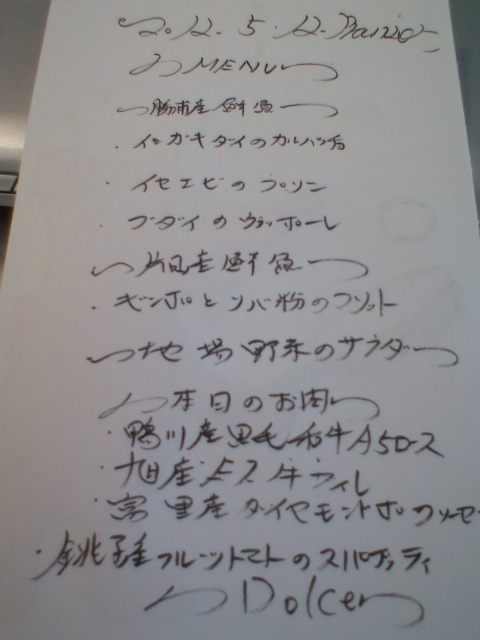 2012.5.12. Pranzo
MENU
勝浦産鮮魚
・イシガキダイのカルパッチョ
・イセエビの
・ブダイのヴァポーレ
片貝産鮮魚
・ギンポとソバ粉のフリット
地場野菜のサラダ
本日のお肉
・鴨川産黒毛和牛A5ロース
・旭産 牛フィレ
・富里産ダイヤモンドポークソーセ
・銚子産フルーツトマトのスパゲッティ
Dolce